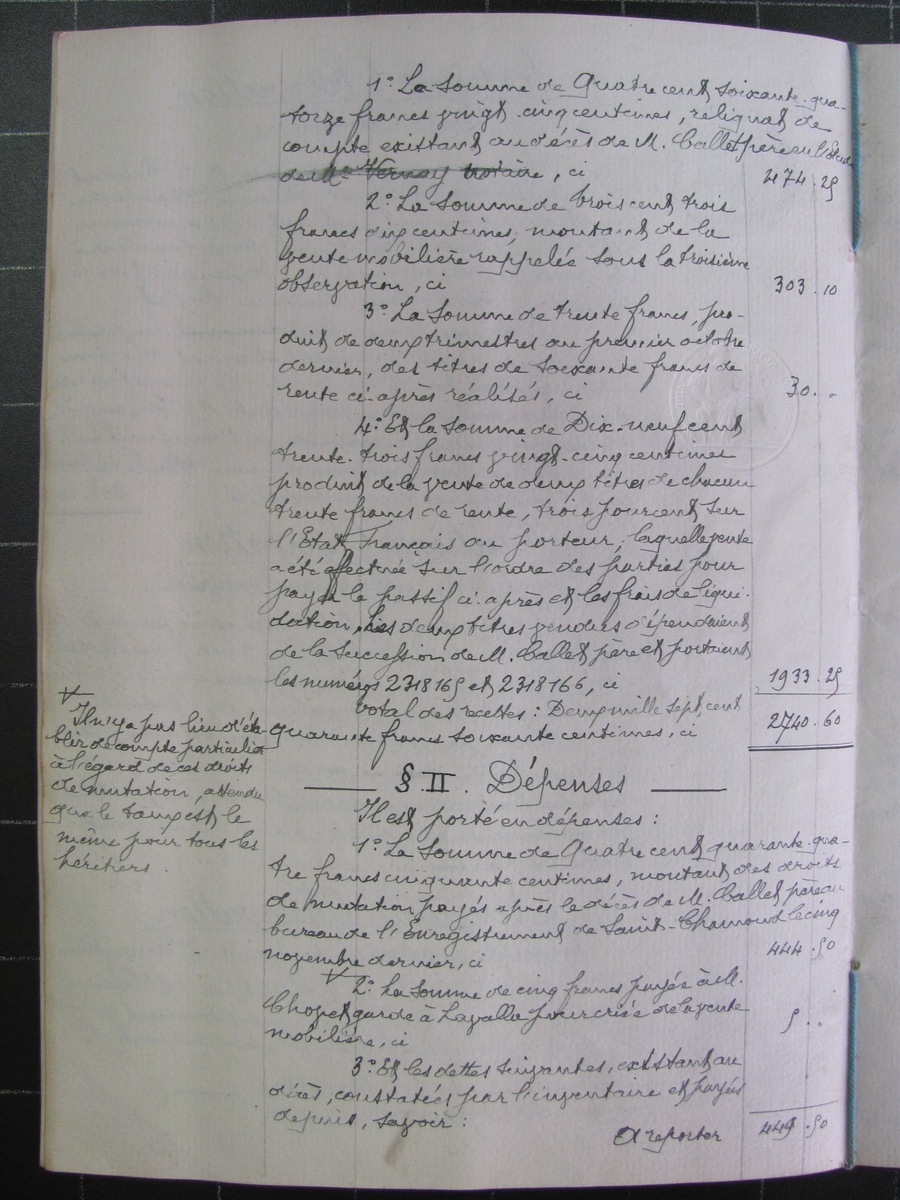 1° La Somme de Quatre cent soixante-qua-
torze francs vingt-cinq centimes, reliquat de
compte existant au décès de M. Callet père en l'Etude
de Me Vernay notaire, ci 474.25
2° La Somme de trois cent trois
francs dix centimes, montant de la
vente mobilière rappelée sous la troisième
observation, ci 303.10
3° La Somme de trente francs, pro-
duit de deux trimestres au premier octobre
dernier, des titres de soixante francs de
rente ci-après réalisés, ci 30. "
4° Et la Somme de Dix-neuf cent
trente-trois francs vingt-cinq centimes
produit de la vente de deux titres de chacun
trente francs de rente, trois pour cent sur
l'Etat Français au porteur, laquelle vente
a été effectuée sur l'ordre des parties pour
payer le passif ci-après et les frais de liqui-
dation, les deux titres vendus dépendaient
de la succession de M. Callet père et portaient
les numéros 2318165 et 2318166, ci 1933.25
Total des recettes : Deux mille sept cent
quarante francs soixante centimes, ci 2740.60
§. II. Dépenses
Il est porté en dépenses :
1° La Somme de Quatre cent quarante-qua-
tre francs cinquante centimes, montant des droits
de mutation payés après le décès de M. Callet père au
bureau de l'Enregistrement de Saint-Chamond le cinq
novembre dernier, ci 444.50
2° La somme de cinq francs payée à M.
Choret garde à Lavalla pour criée de la vente
mobilière, ci 5. "
3° Et les dettes suivantes, existant au
décès, constatées par l'inventaire et payées
depuis, savoir :
A reporter 449.50
Il n'y a pas lieu d'éta-
blir de compte particulier
à l'égard de ces droits
de mutation, attendu
que le taux est le
même pour tous les
héritiers.